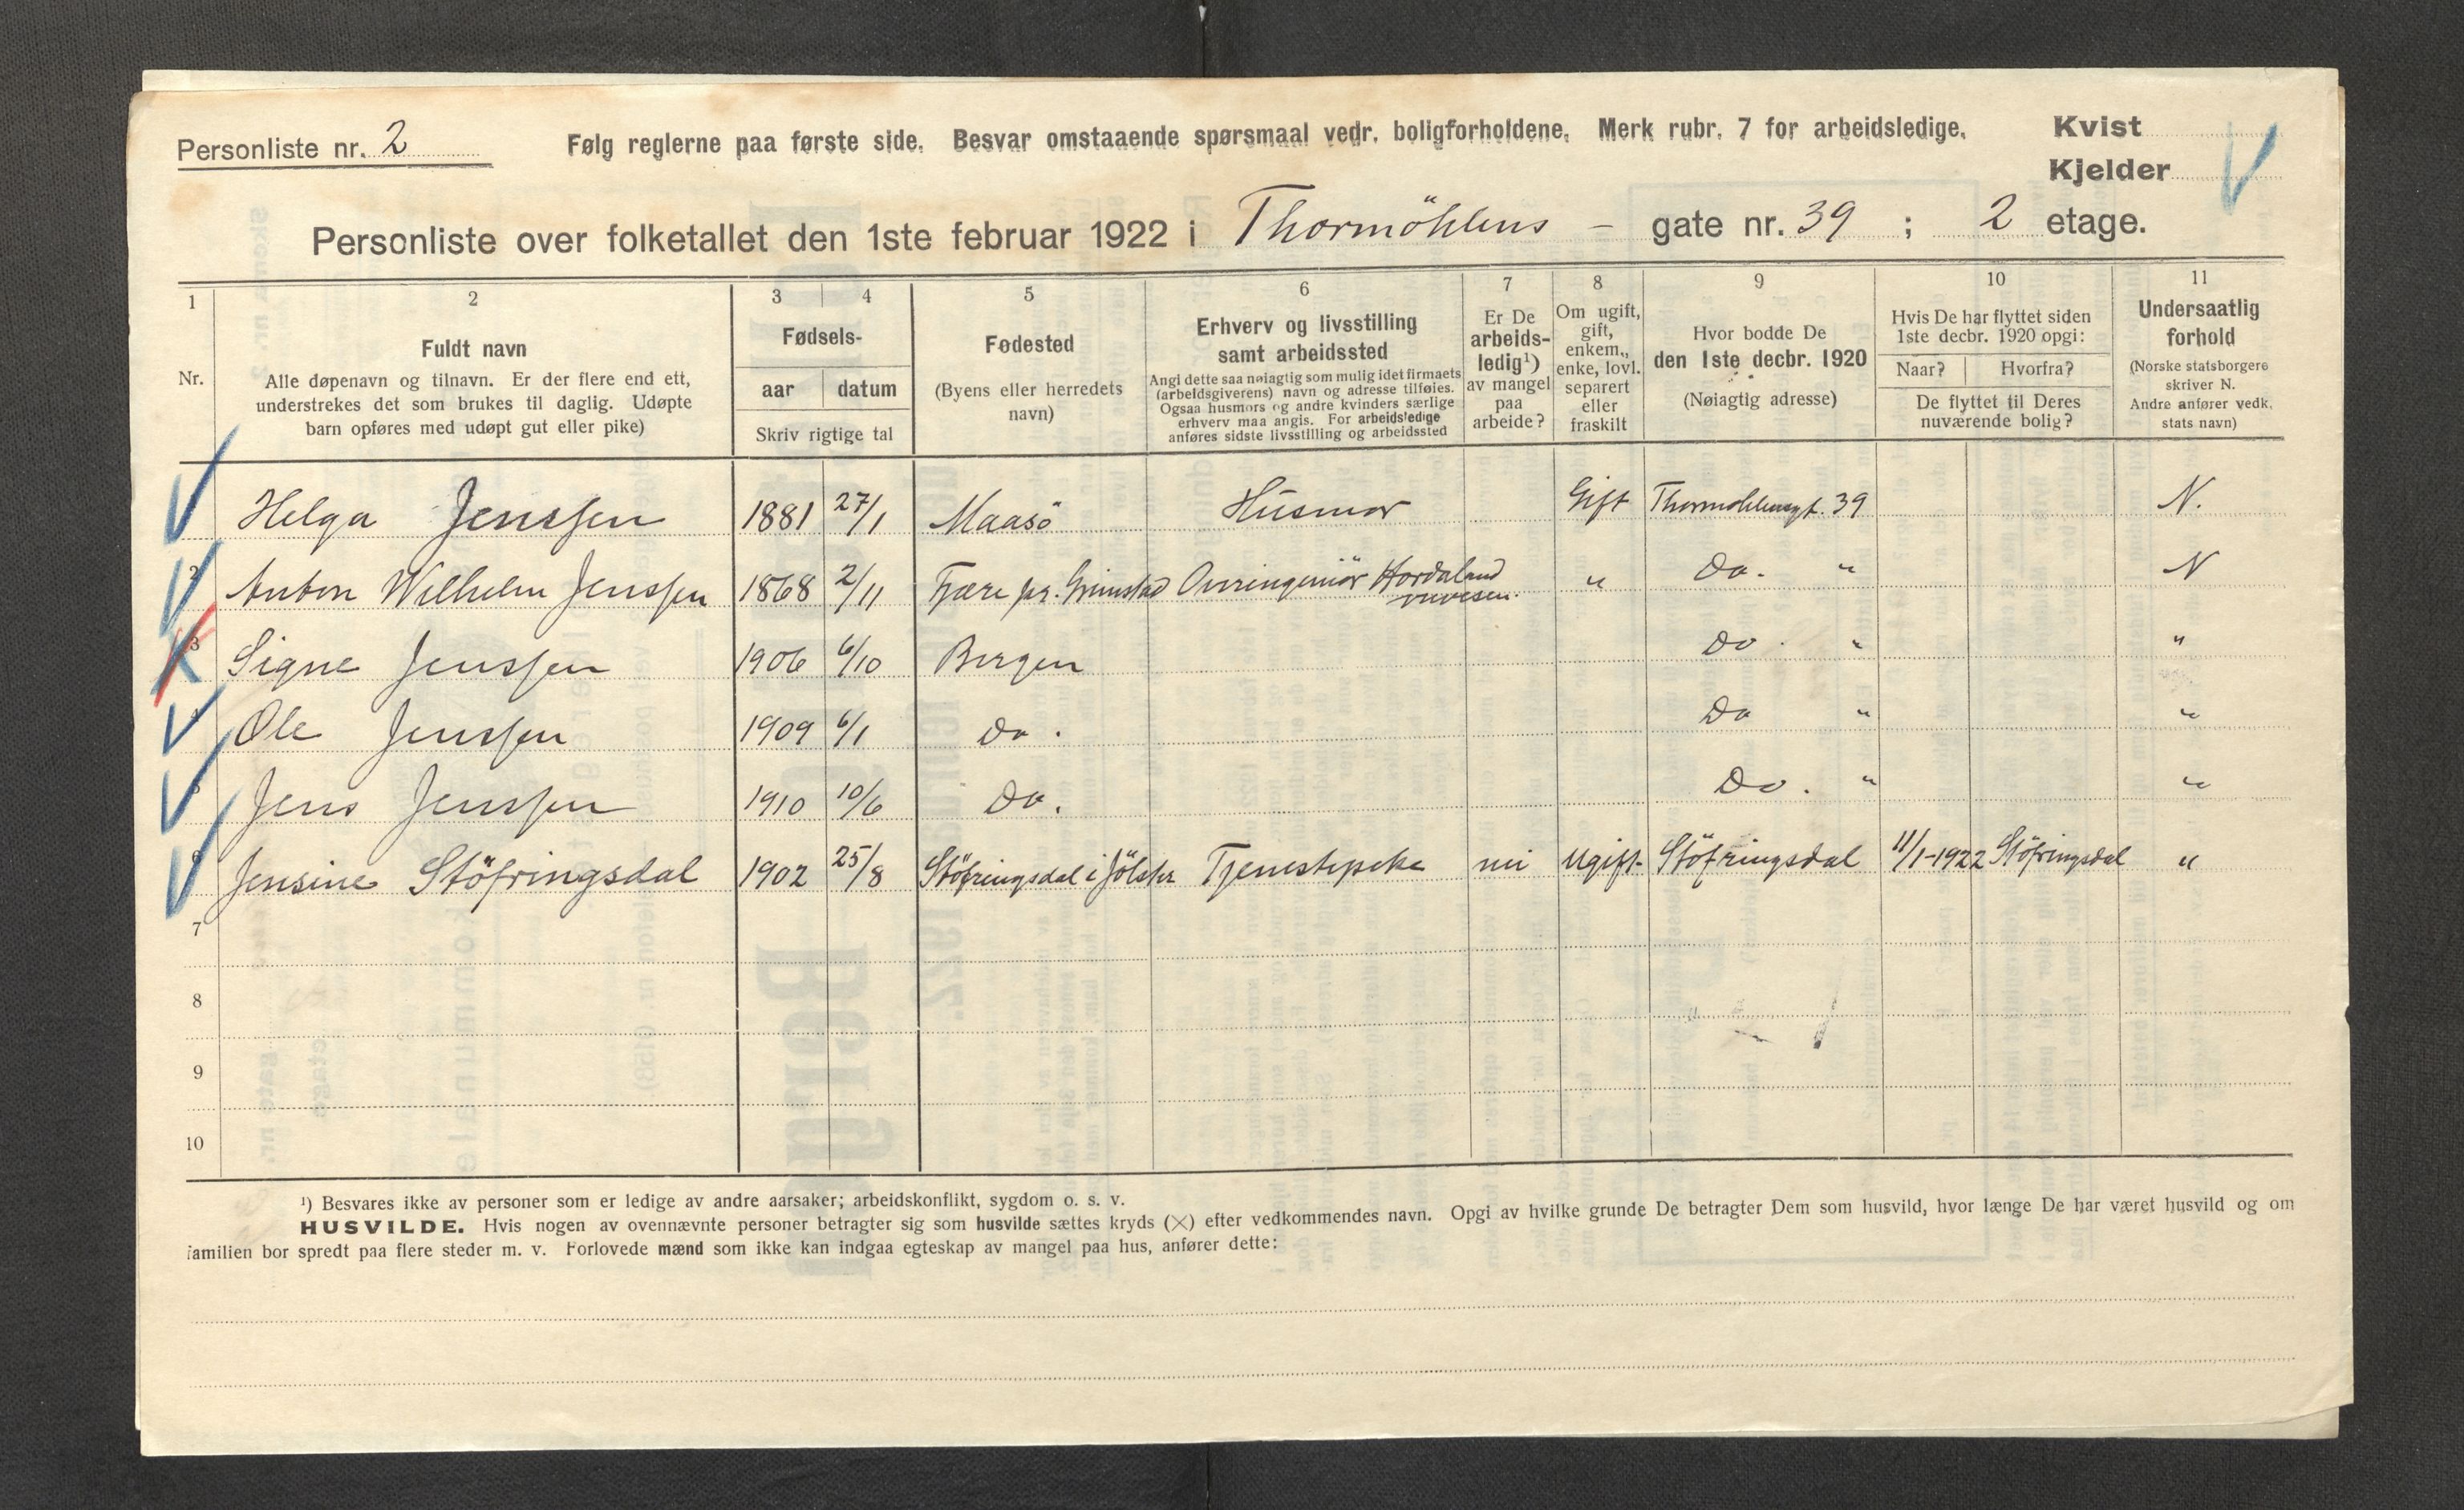 Personliste nr. 2
Følg reglerne paa første side. Besvar omstaaende spørsmaal vedr. boligforholdene. Merk rubr. 7 for arbeidsledige.
Kvist
Kjelder
Personliste over folketallet den 1ste februar 1922 i Thormöhlens - gate nr. 39 ; 2 etage.
1 2 3 4 5 6 7 8 9 10 11
Nr.
Fuldt navn
Alle døpenavn og tilnavn. Er der flere end ett,
understrekes det som brukes til daglig. Udøpte
barn opføres med udøpt gut eller pike)
Fødsels-
aar datum
Skriv rigtige tal
Fødested
(Byens eller herredets
navn)
Erhverv og livsstilling
samt arbeidssted
Angi dette saa nøiagtig som mulig idet firmaets
(arbeidsgiverens) navn og adresse tilføies.
Ogsaa husmors og andre kvinders særlige
erhverv maa angis. For arbeidsledige
anføres sidste livsstilling og arbeidssted
Er De
arbeids-
ledig¹)
av mangel
paa
arbeide?
Om ugift,
gift,
enkem.,
enke, lovl.
separert
eller
fraskilt
Hvor bodde De
den 1ste decbr. 1920
(Nøiagtig adresse)
Hvis De har flyttet siden
1ste decbr. 1920 opgi:
Naar? Hvorfra?
De flyttet til Deres
nuværende bolig?
Undersaatlig
forhold
(Norske statsborgere
skriver N.
Andre anfører vedk.
stats navn)
Helga Jenssen 1881 27/1 Maasö Husmor Gift Thormöhlensgt. 39 N.
2 Anton Wilhelm Jenssen 1868 2/11 Fjære pr. Grimstad Overingeniör Hordaland veivesen. " Do. " N
3 Signe Jenssen 1906 6/10 Bergen Do. " "
4 Ole Jenssen 1909 6/1 Do. Do " "
5 Jens Jenssen 1910 10/6 Do. Do. " "
6 Jensine Stöfringsdal 1902 25/8 Stöfringsdal i Jölster Tjenestepike nei Ugift Stöfringsdal 11/1-1922 Stöfringsdal "
7
8
9
10
¹) Besvares ikke av personer som er ledige av andre aarsaker; arbeidskonflikt, sygdom o. s. v.
HUSVILDE. Hvis nogen av ovennævnte personer betragter sig som husvilde sættes kryds (×) efter vedkommendes navn. Opgi av hvilke grunde De betragter Dem som husvild, hvor længe De har været husvild og om
familien bor spredt paa flere steder m. v. Forlovede mænd som ikke kan indgaa egteskap av mangel paa hus, anfører dette: